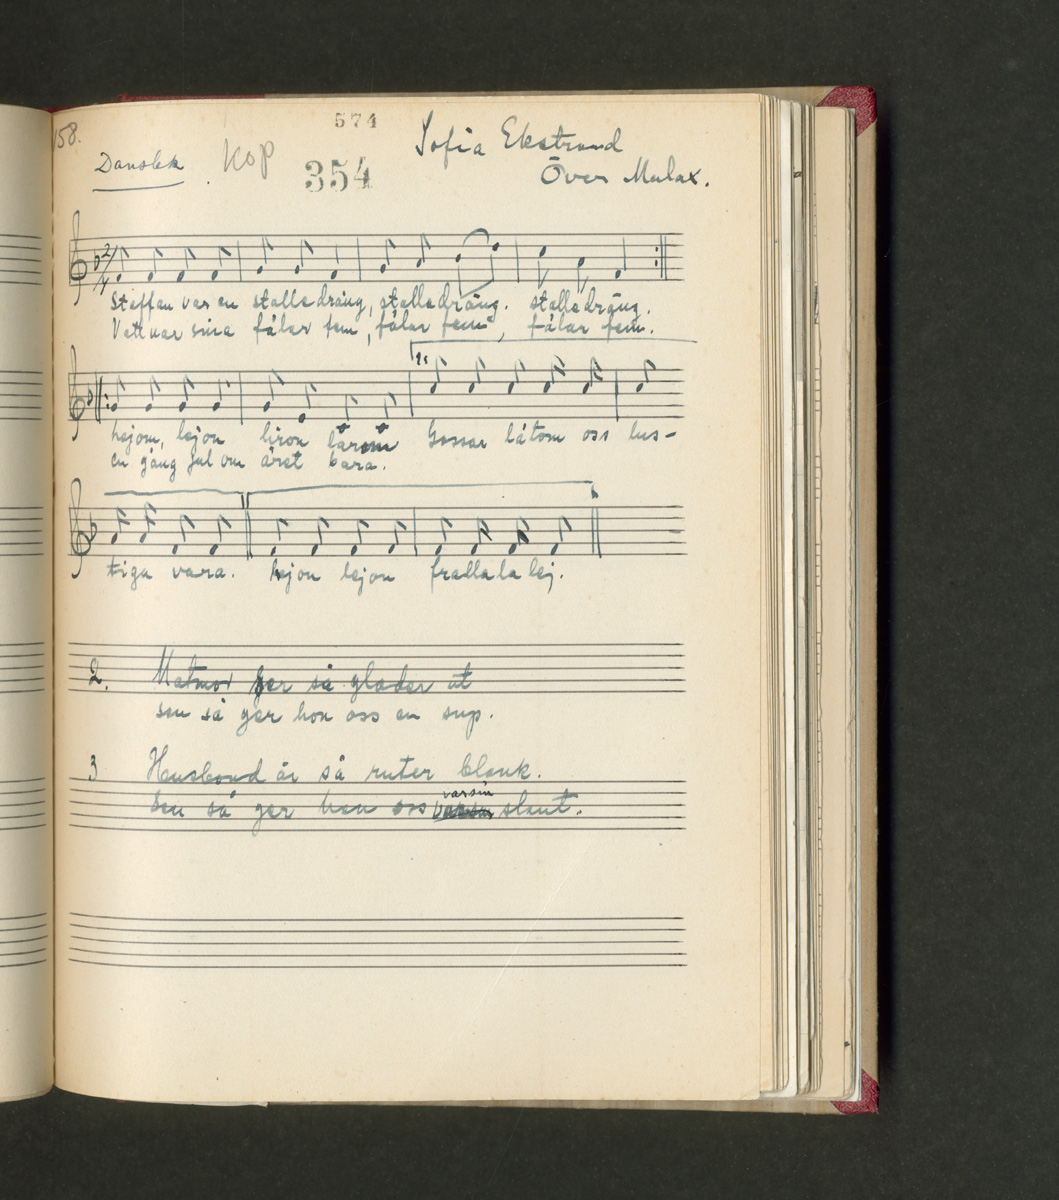 158.
574
Danslek
Kop
354
Sofia Ekstrand
Över Malax.
2/4
Staffan var en stalledräng, stalledräng. stalledräng.
Vattnar sina fålar fem, fålar fem, fålar fem.
1.
hejom, lejon liron lärom Gossar låtom oss lus-
en gång jul om året bara.
tiga vara. hejon lejon frallala lej.
2. Matmor ser så glader ut
sen så ger hon oss en sup.
3 Husbond är så ruter blank.
varsin
Sen så ger han oss slant.